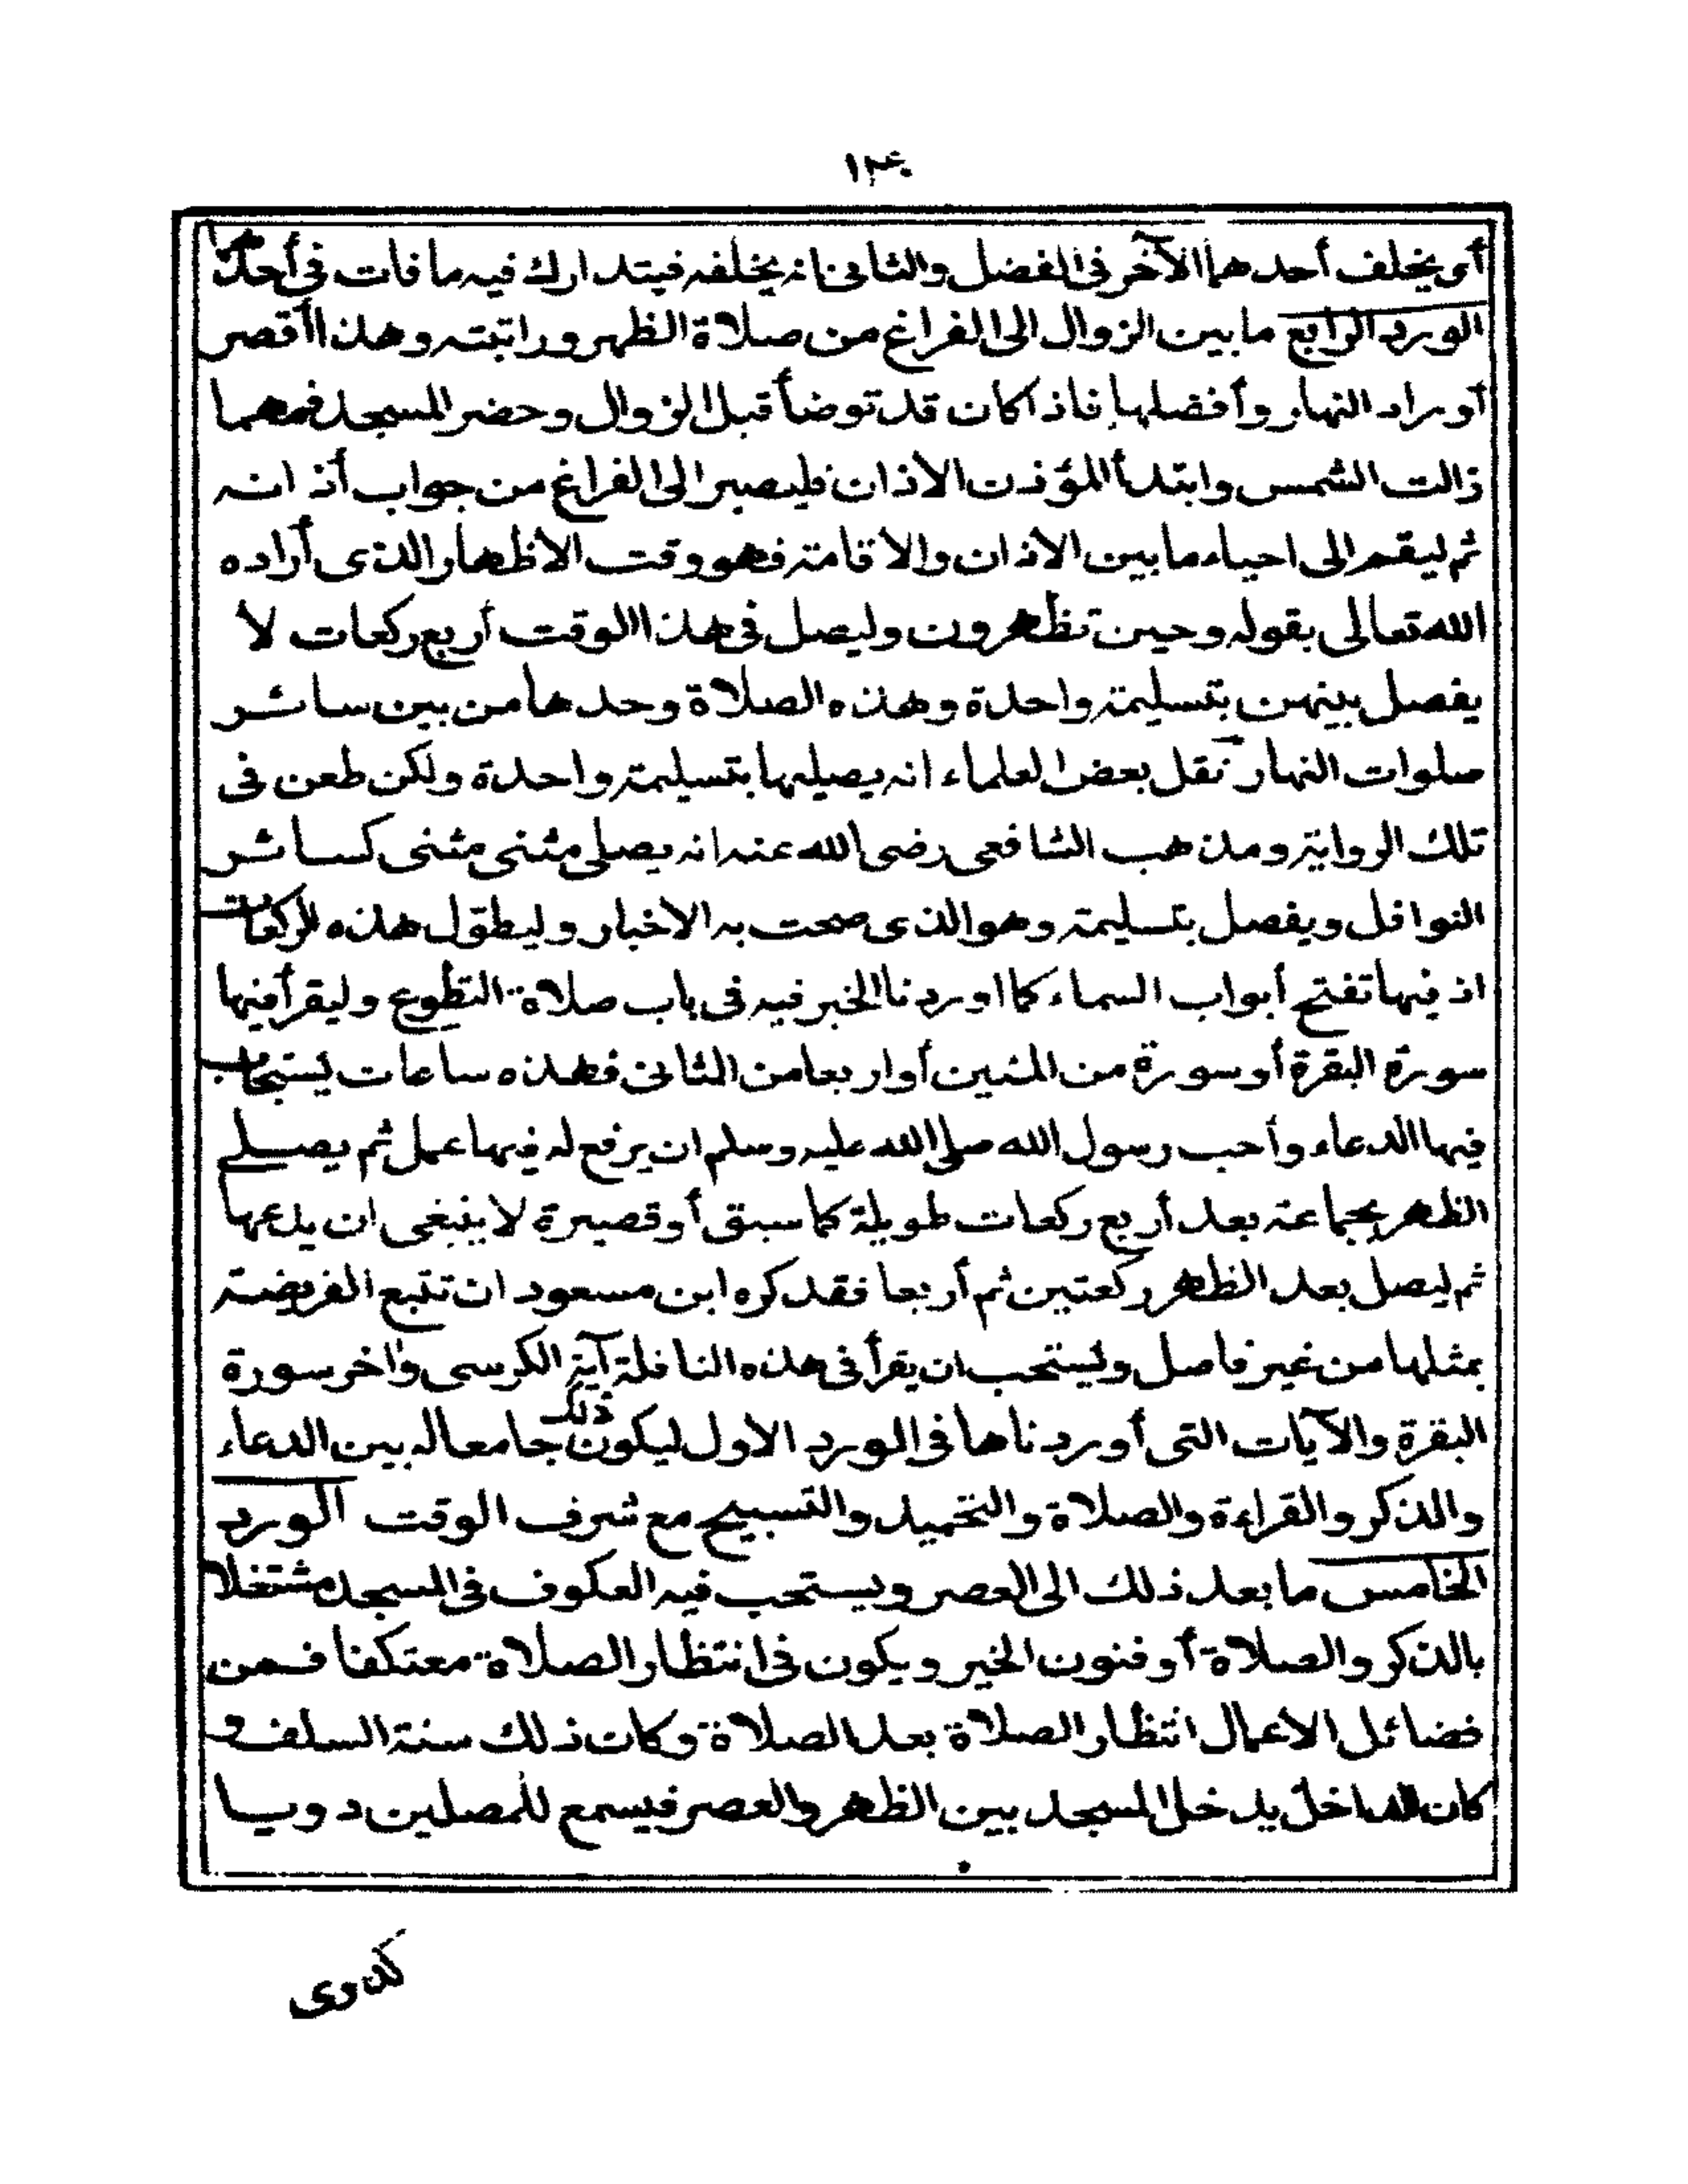 ١٣٠
أى يخلف أحدهما الآخر فى الفضل والثانى انه يخلفه فيتدارك فيه ما فات فى أحدهما
الورد الرابع ما بين الزوال الى الفراغ من صلاة الظهر وراتبته وهذا أقصر
أوراد النهار وأفضلها فاذا كان قد توضأ قبل الزوال وحضر المسجد فمهما
زالت الشمس وابتدأ المؤذن الاذان فليصبر الى الفراغ من جواب أذانه
ثم ليقم الى احياء ما بين الاذان والاقامة فهو وقت الاظهار الذى أراده
الله تعالى بقوله وحين تظهرون وليصل فى هذا الوقت أربع ركعات لا
يفصل بينهن بتسليمة واحدة وهذه الصلاة وحدها من بين سائر
صلوات النهار نقل بعض العلماء انه يصليها بتسليمة واحدة ولكن طعن فى
تلك الرواية ومذهب الشافعى رضى الله عنه انه يصلى مثنى مثنى كسائر
النوافل ويفصل بتسليمة وهو الذى صحت به الاخبار وليطول هذه الركعات
اذ فيها تفتح أبواب السماء كما اوردنا الخبر فيه فى باب صلاة التطوع وليقرأ فيها
سورة البقرة أو سورة من المئين أو اربعا من المثانى فهذه ساعات يستجاب
فيها الدعاء وأحب رسول الله صلى الله عليه وسلم ان يرفع له فيها عمل ثم يصلى
الظهر بجماعة بعد أربع ركعات طويلة كما سبق أو قصيرة لا ينبغى ان يدعها
ثم ليصل بعد الظهر ركعتين ثم أربعا فقد كره ابن مسعود ان تتبع الفريضة
بمثلها من غير فاصل ويستحب ان يقرأ فى هذه النافلة آية الكرسى واخر سورة
البقرة والآيات التى أوردناها فى الورد الاول ليكون ذلك جامعا له بين الدعاء
والذكر والقراءة والصلاة والتحميد والتسبيح مع شرف الوقت الورد
الخامس ما بعد ذلك الى العصر ويستحب فيه العكوف فى المسجد مشتغلا
بالذكر والصلاة أو فنون الخير ويكون فى انتظار الصلاة معتكفا فمن
فضائل الاعمال انتظار الصلاة بعد الصلاة وكان ذلك سنة السلف و
كان الداخل يدخل المسجد بين الظهر والعصر فيسمع للمصلين دويا
كدوى